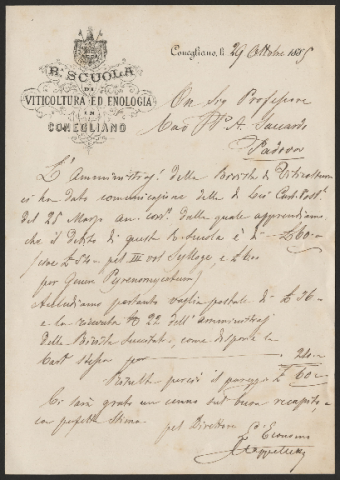 R.ª SCUOLA
DI
VITICOLTURA ED ENOLOGIA
IN
CONEGLIANO
Conegliano, li 29 Ottobre 1885
On. Sig Professore
Cav. P. A. Saccardo
Padova
L'Amministraz. della Rivista di Viticoltura
ci ha dato comunicazione della di Lei Cart. Post.
del 25 Marzo an. cor. dalla quale apprendiamo
che il debito di questa Scuola è di £ 60.=
(cioe £ 54.= pel III vol Sylloge, e £
per Genera Pyrenomycetum)
Accludiamo pertanto vaglia postale di £ 36=
e la ricevuta N. 22 dell'amministraz
della Rivista Suocitata, come disponela
Cart. stessa per 24.=
Risulta perciò il pareggio £ 60.=
Ci sarà grato un cenno sul buon recapito,
con perfetta Stima.
pel Direttore
L'Economo